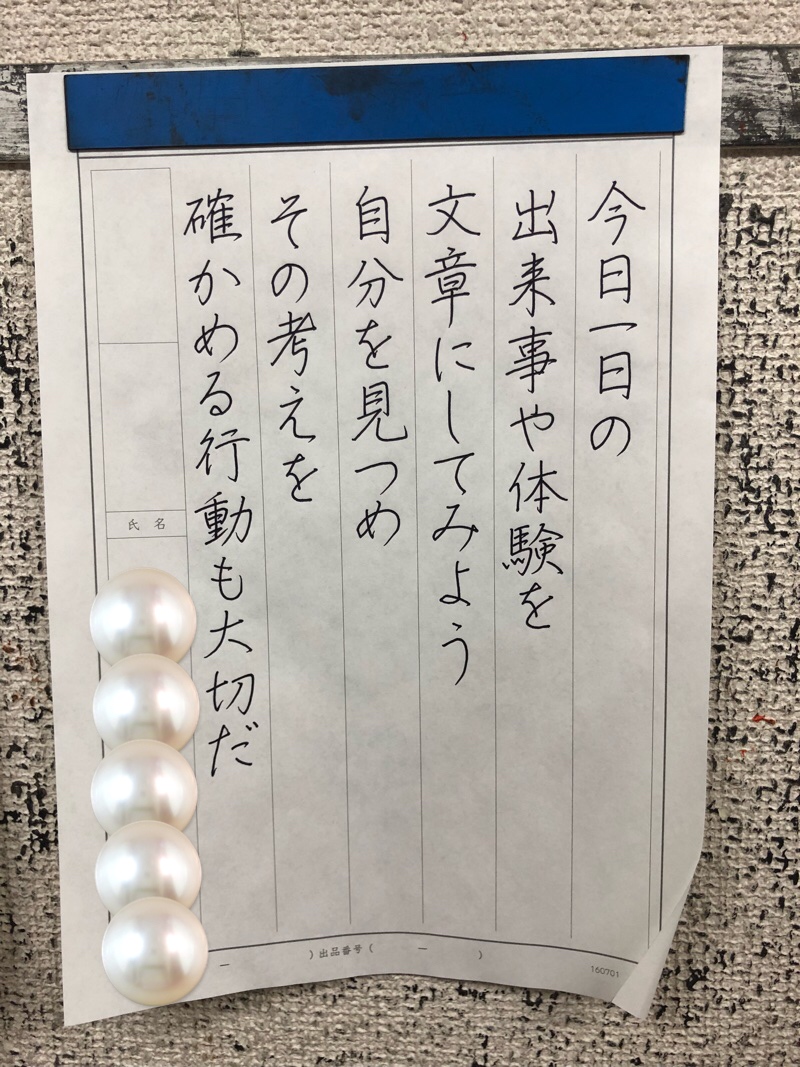 今日一日の
出来事や体験を
文章にしてみよう
自分を見つめ
その考えを
確かめる行動も大切だ
氏名
―　）出品番号（　―　）
160701